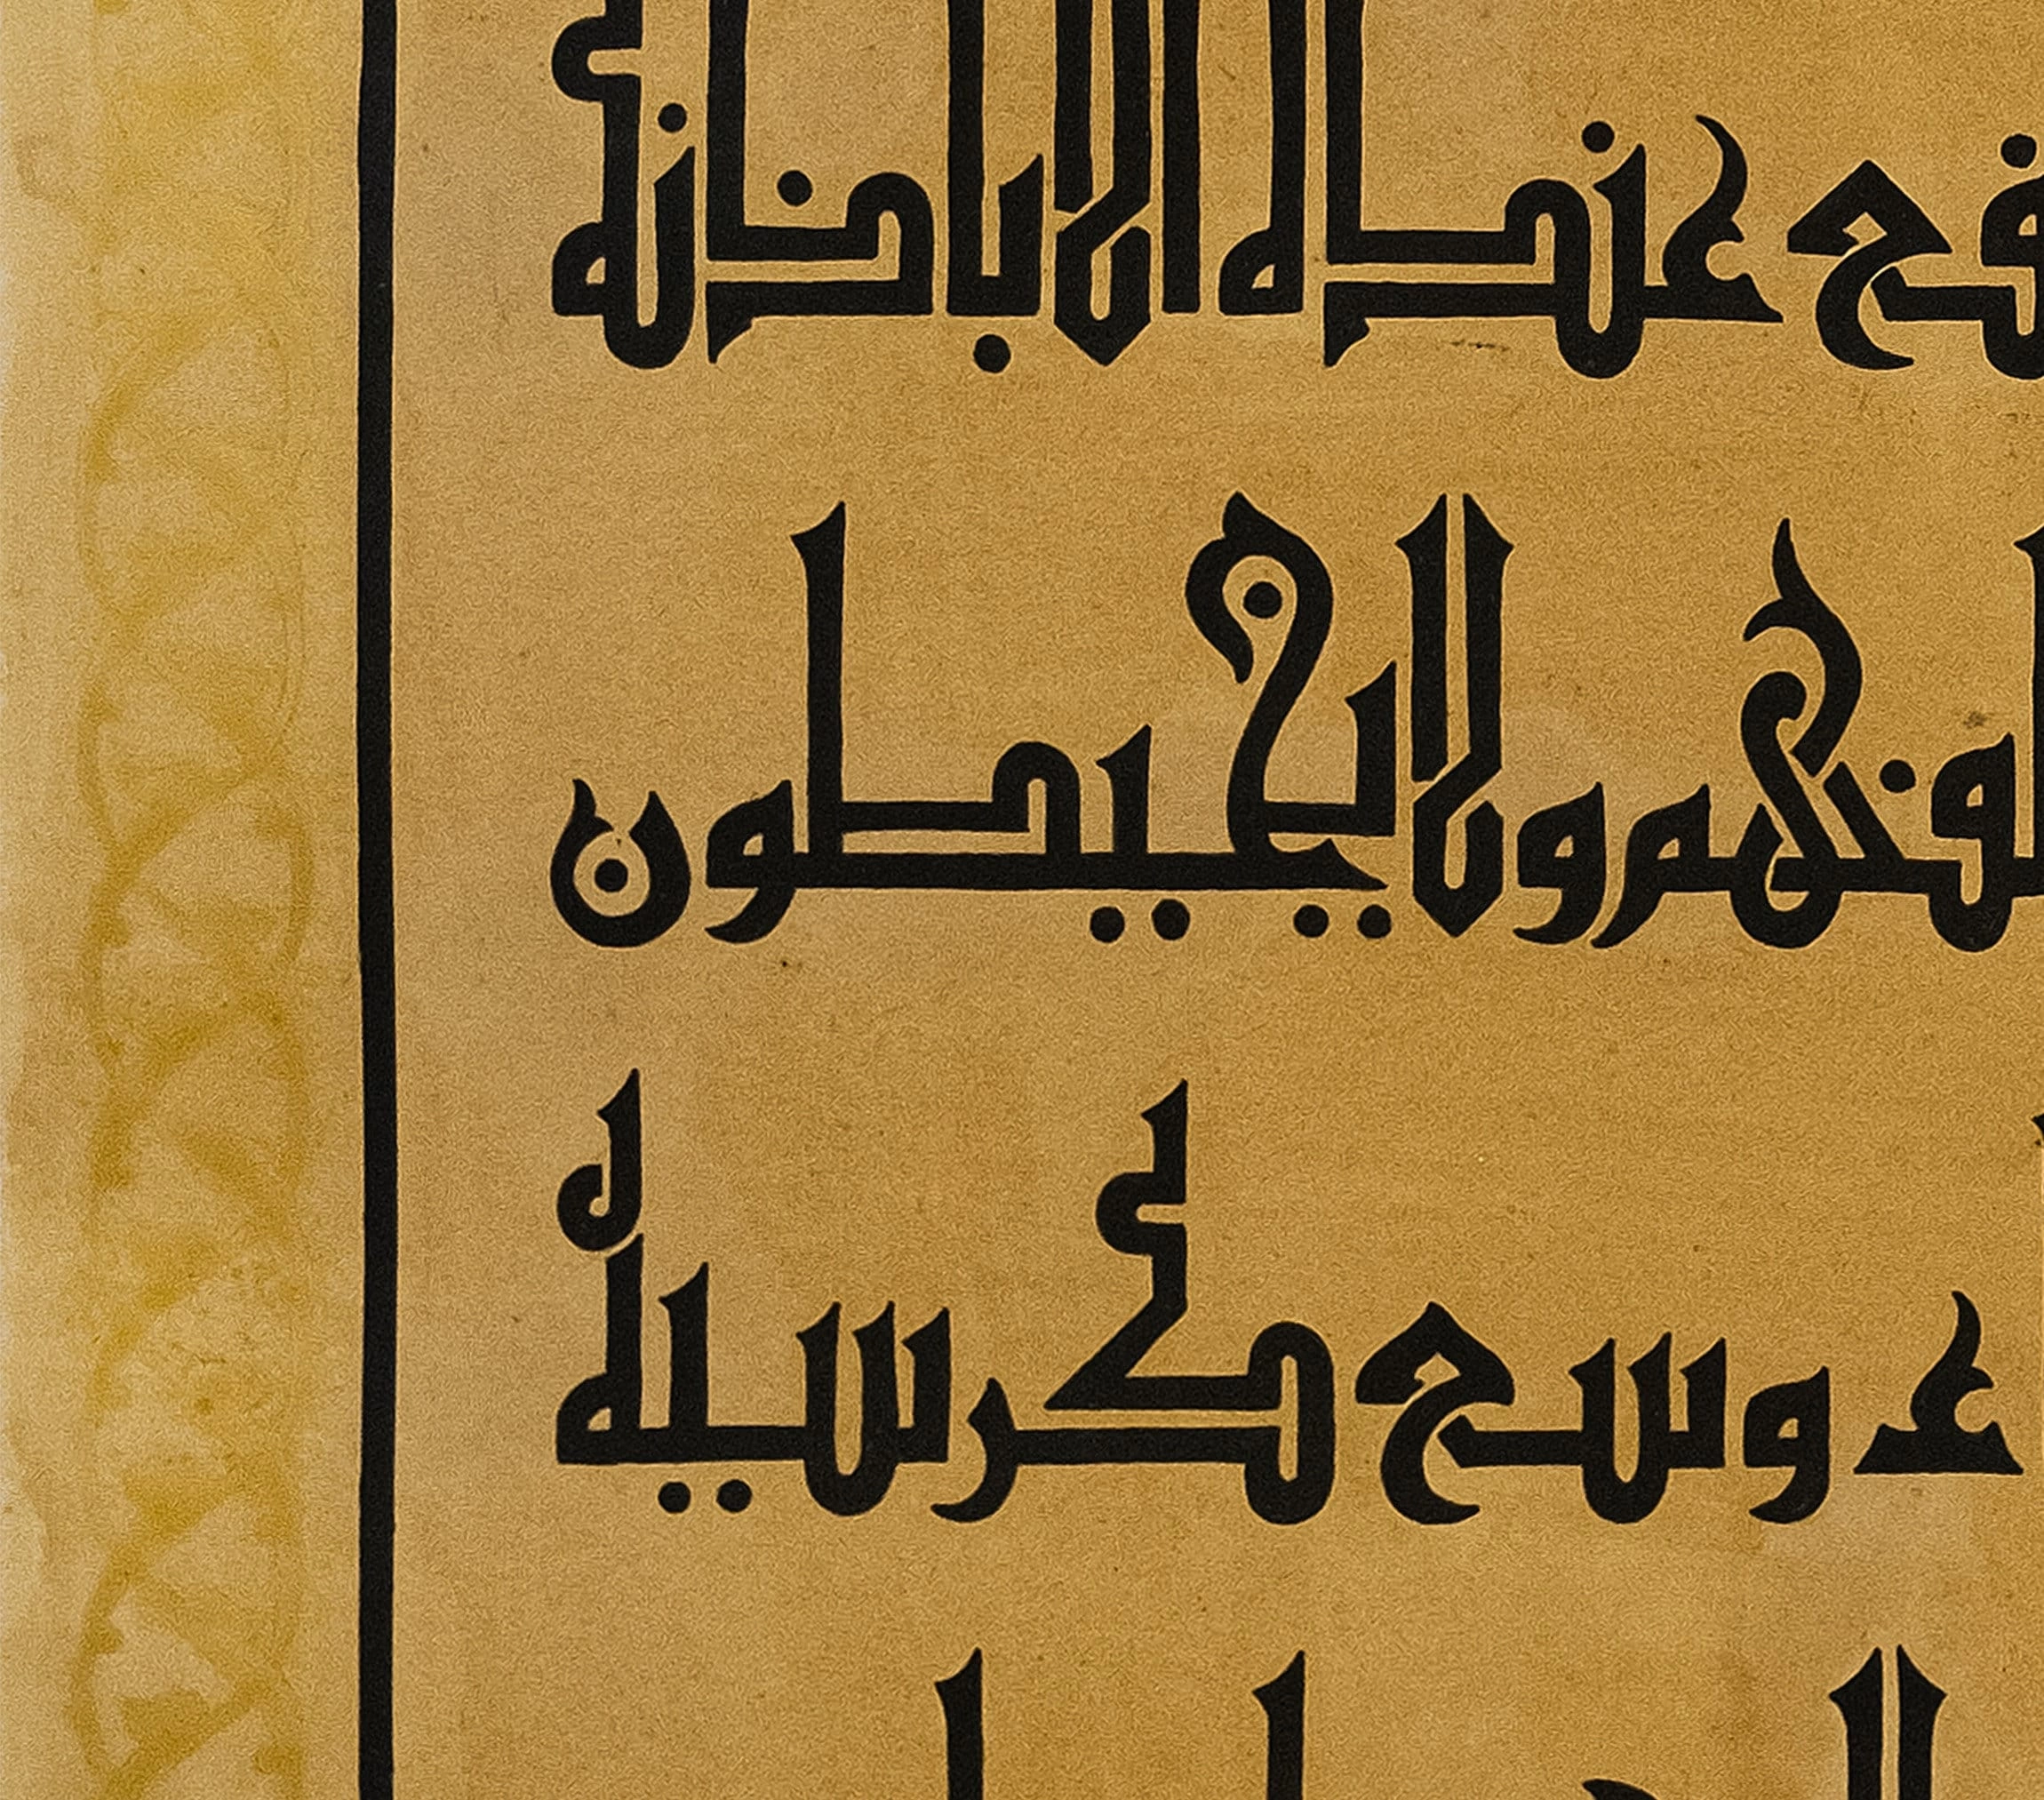 فع عنده الا باذنه
لفهم ولا يحيطون
ء وسع كرسيه